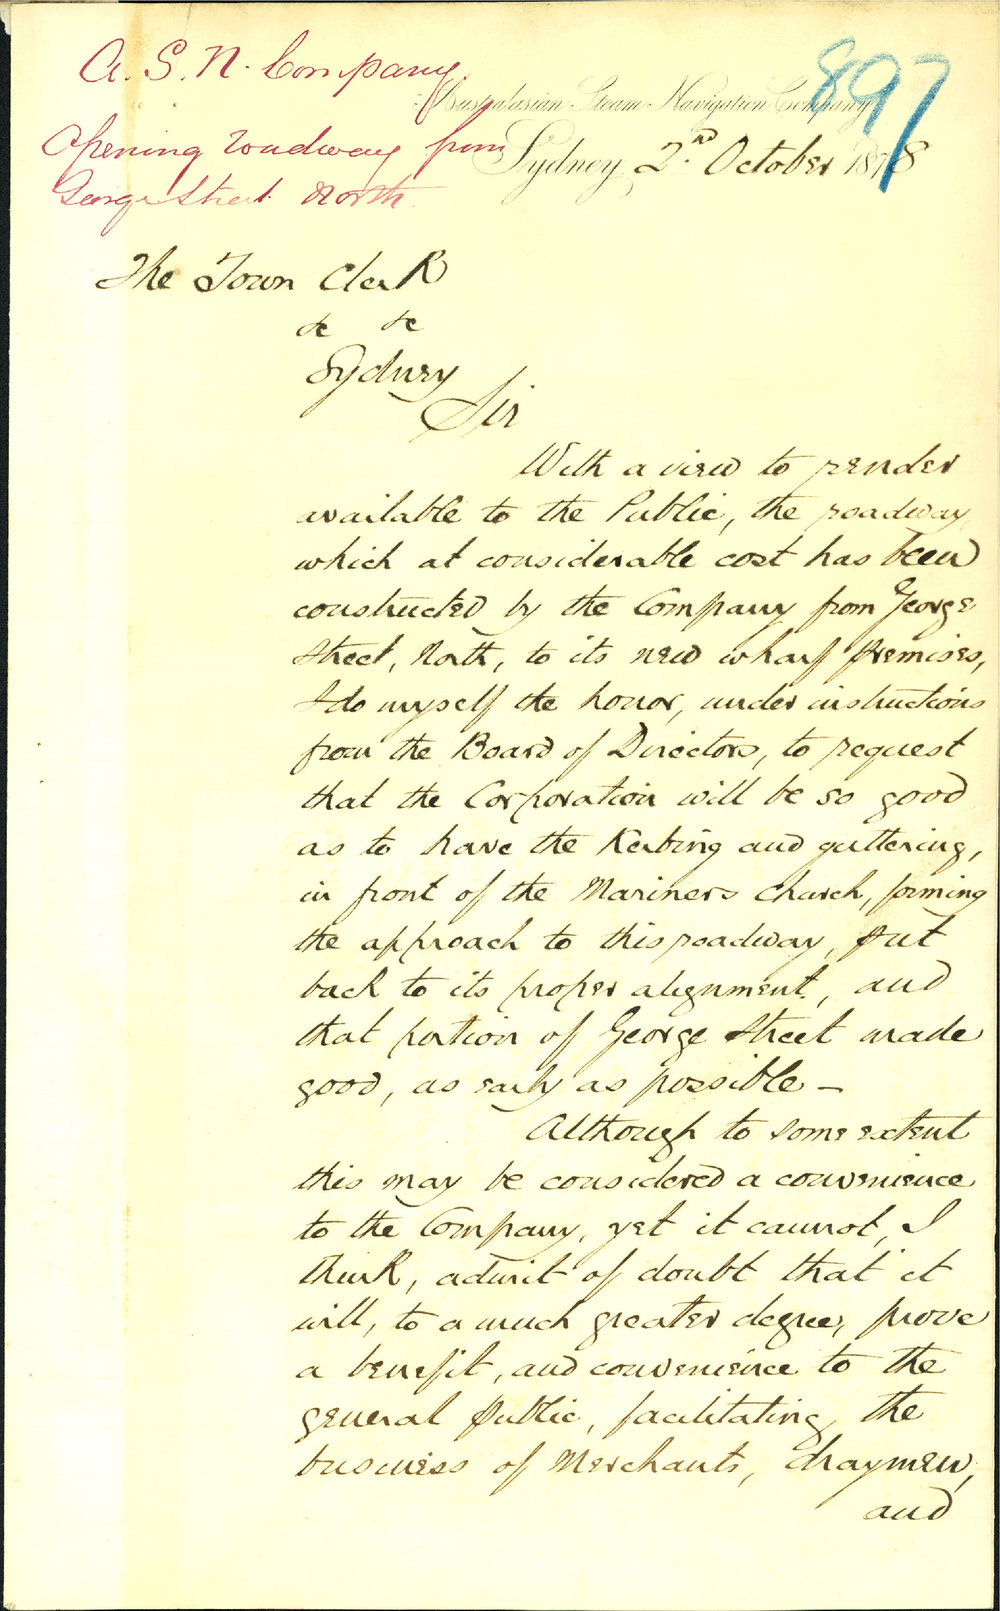 A. S. N. Company
Opening roadway from
George Street North
897
Australasian Steam Navigation Company
Sydney, 2nd October 1878
The Town Clerk
&c &c
Sydney
Sir
With a view to render
available to the Public, the roadway
which at considerable cost has been
constructed by the Company from George
Street, North, to its new wharf premises,
I do myself the honor, under instructions
from the Board of Directors, to request
that the Corporation will be so good
as to have the Kerbing and guttering,
in front of the Mariners Church, forming
the approach to this roadway, put
back to its proper alignment, and
that portion of George Street made
good, as early as possible –
Although to some extent
this may be considered a convenience
to the Company, yet it cannot, I
think, admit of doubt that it
will, to a much greater degree, prove
a benefit, and convenience to the
general public, facilitating the
business of Merchants, draymen,
and